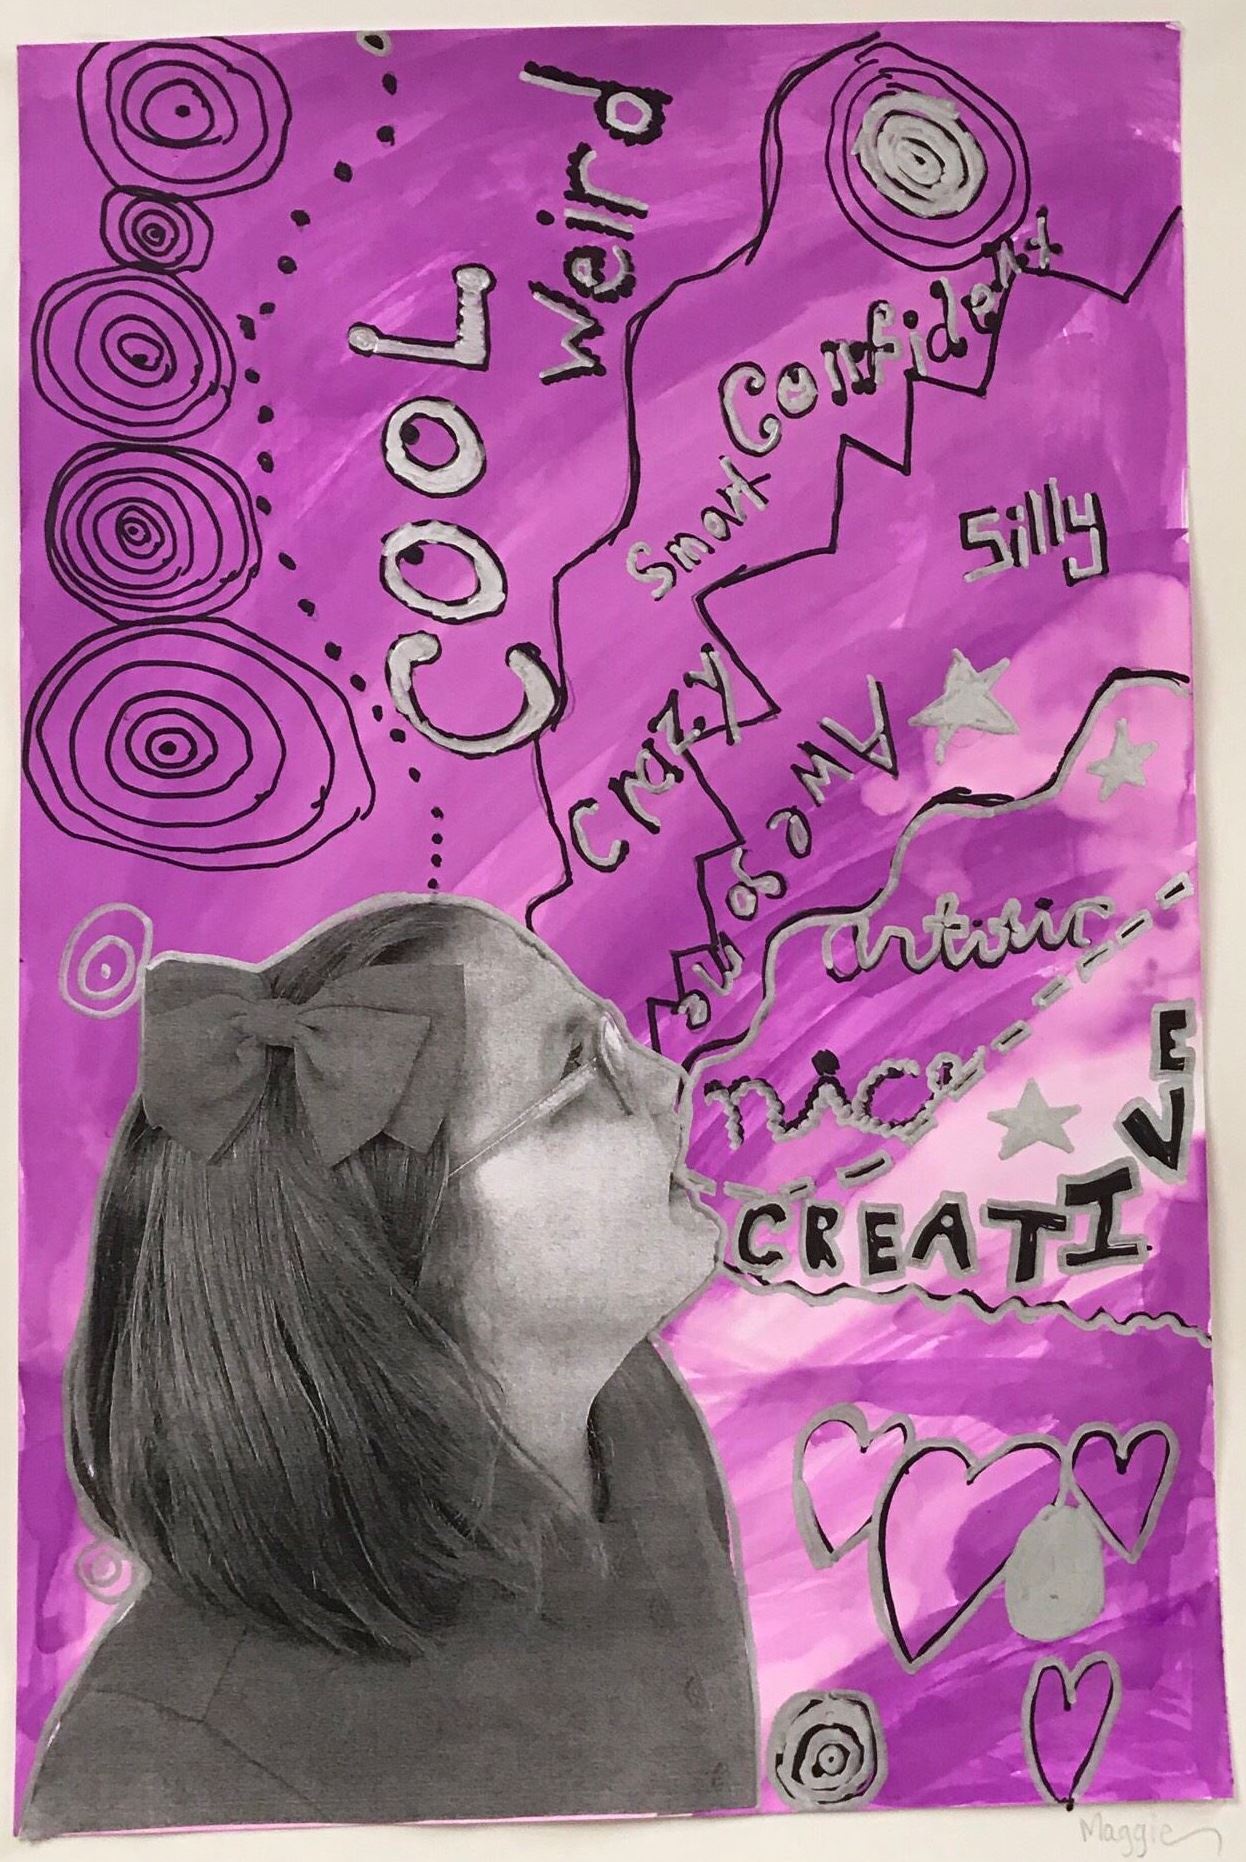 Weird
COOL
Confident
Smart
Silly
Crazy
AWesome
artisic
nice
CREATIVE
Maggie